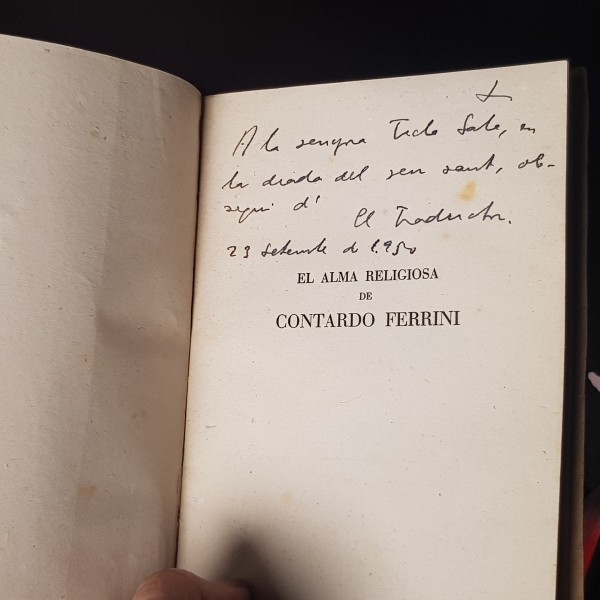 A la senyora Tecla Sala, en
la diada del seu sant, ob-
sequi d'
El Traductor.
23 Setembre de 1.950
EL ALMA RELIGIOSA
DE
CONTARDO FERRINI